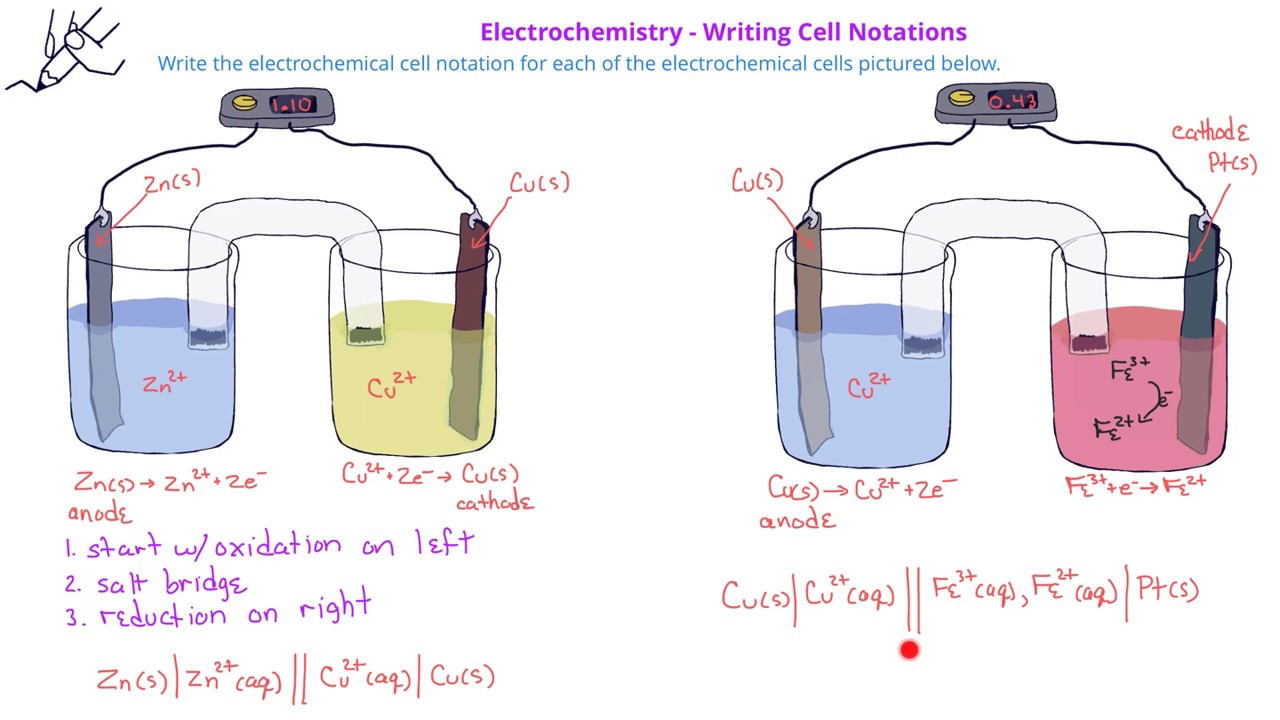 Electrochemistry - Writing Cell Notations
Write the electrochemical cell notation for each of the electrochemical cells pictured below.
1.10
Zn(s)
Cu(s)
Zn²⁺
Cu²⁺
Zn(s) → Zn²⁺ + 2e⁻
anode
Cu²⁺ + 2e⁻ → Cu(s)
cathode
1. start w/ oxidation on left
2. salt bridge
3. reduction on right
Zn(s) | Zn²⁺(aq) || Cu²⁺(aq) | Cu(s)
0.43
Cu(s)
cathode
Pt(s)
Cu²⁺
Fe³⁺
e⁻
Fe²⁺
Cu(s) → Cu²⁺ + 2e⁻
anode
Fe³⁺ + e⁻ → Fe²⁺
Cu(s) | Cu²⁺(aq) || Fe³⁺(aq), Fe²⁺(aq) | Pt(s)